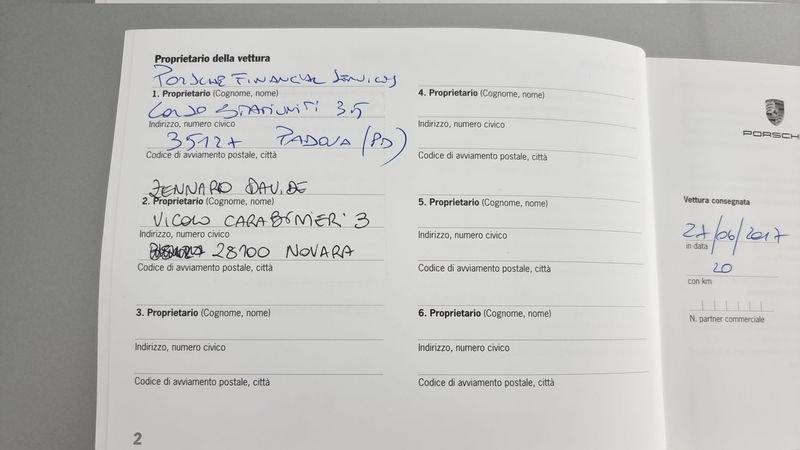 Proprietario della vettura
PORSCHE FINANCIAL SERVICES
1. Proprietario (Cognome, nome)
CORSO STATI UNITI 35
Indirizzo, numero civico
35127 PADOVA (PD)
Codice di avviamento postale, città
ZENNARO DAVIDE
2. Proprietario (Cognome, nome)
VICOLO CARABINIERI 3
Indirizzo, numero civico
28100 NOVARA
Codice di avviamento postale, città
3. Proprietario (Cognome, nome)
Indirizzo, numero civico
Codice di avviamento postale, città
2
4. Proprietario (Cognome, nome)
Indirizzo, numero civico
Codice di avviamento postale, città
5. Proprietario (Cognome, nome)
Indirizzo, numero civico
Codice di avviamento postale, città
6. Proprietario (Cognome, nome)
Indirizzo, numero civico
Codice di avviamento postale, città
PORSCH
Vettura consegnata
27/06/2017
in data
20
con km
N. partner commerciale